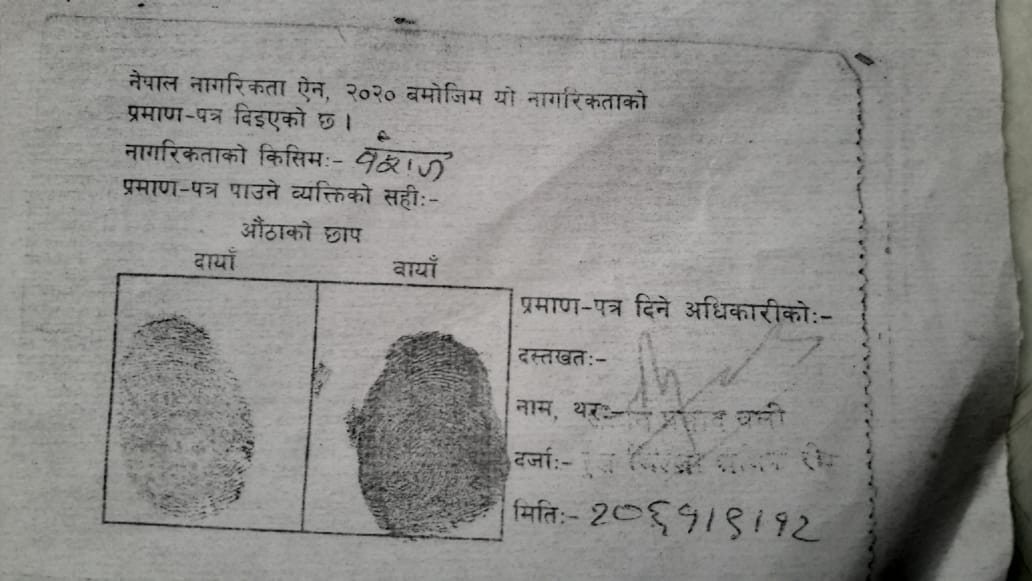 नेपाल नागरिकता ऐन, २०२० बमोजिम यो नागरिकताको
प्रमाण-पत्र दिइएको छ ।
नागरिकताको किसिमः- वंशज
प्रमाण-पत्र पाउने व्यक्तिको सहीः-
औंठाको छाप
दायाँ वायाँ
प्रमाण-पत्र दिने अधिकारीकोः-
दस्तखतः-
नाम, थरः- प्रसाद वली
दर्जाः-
मितिः- २०६१।९।१२